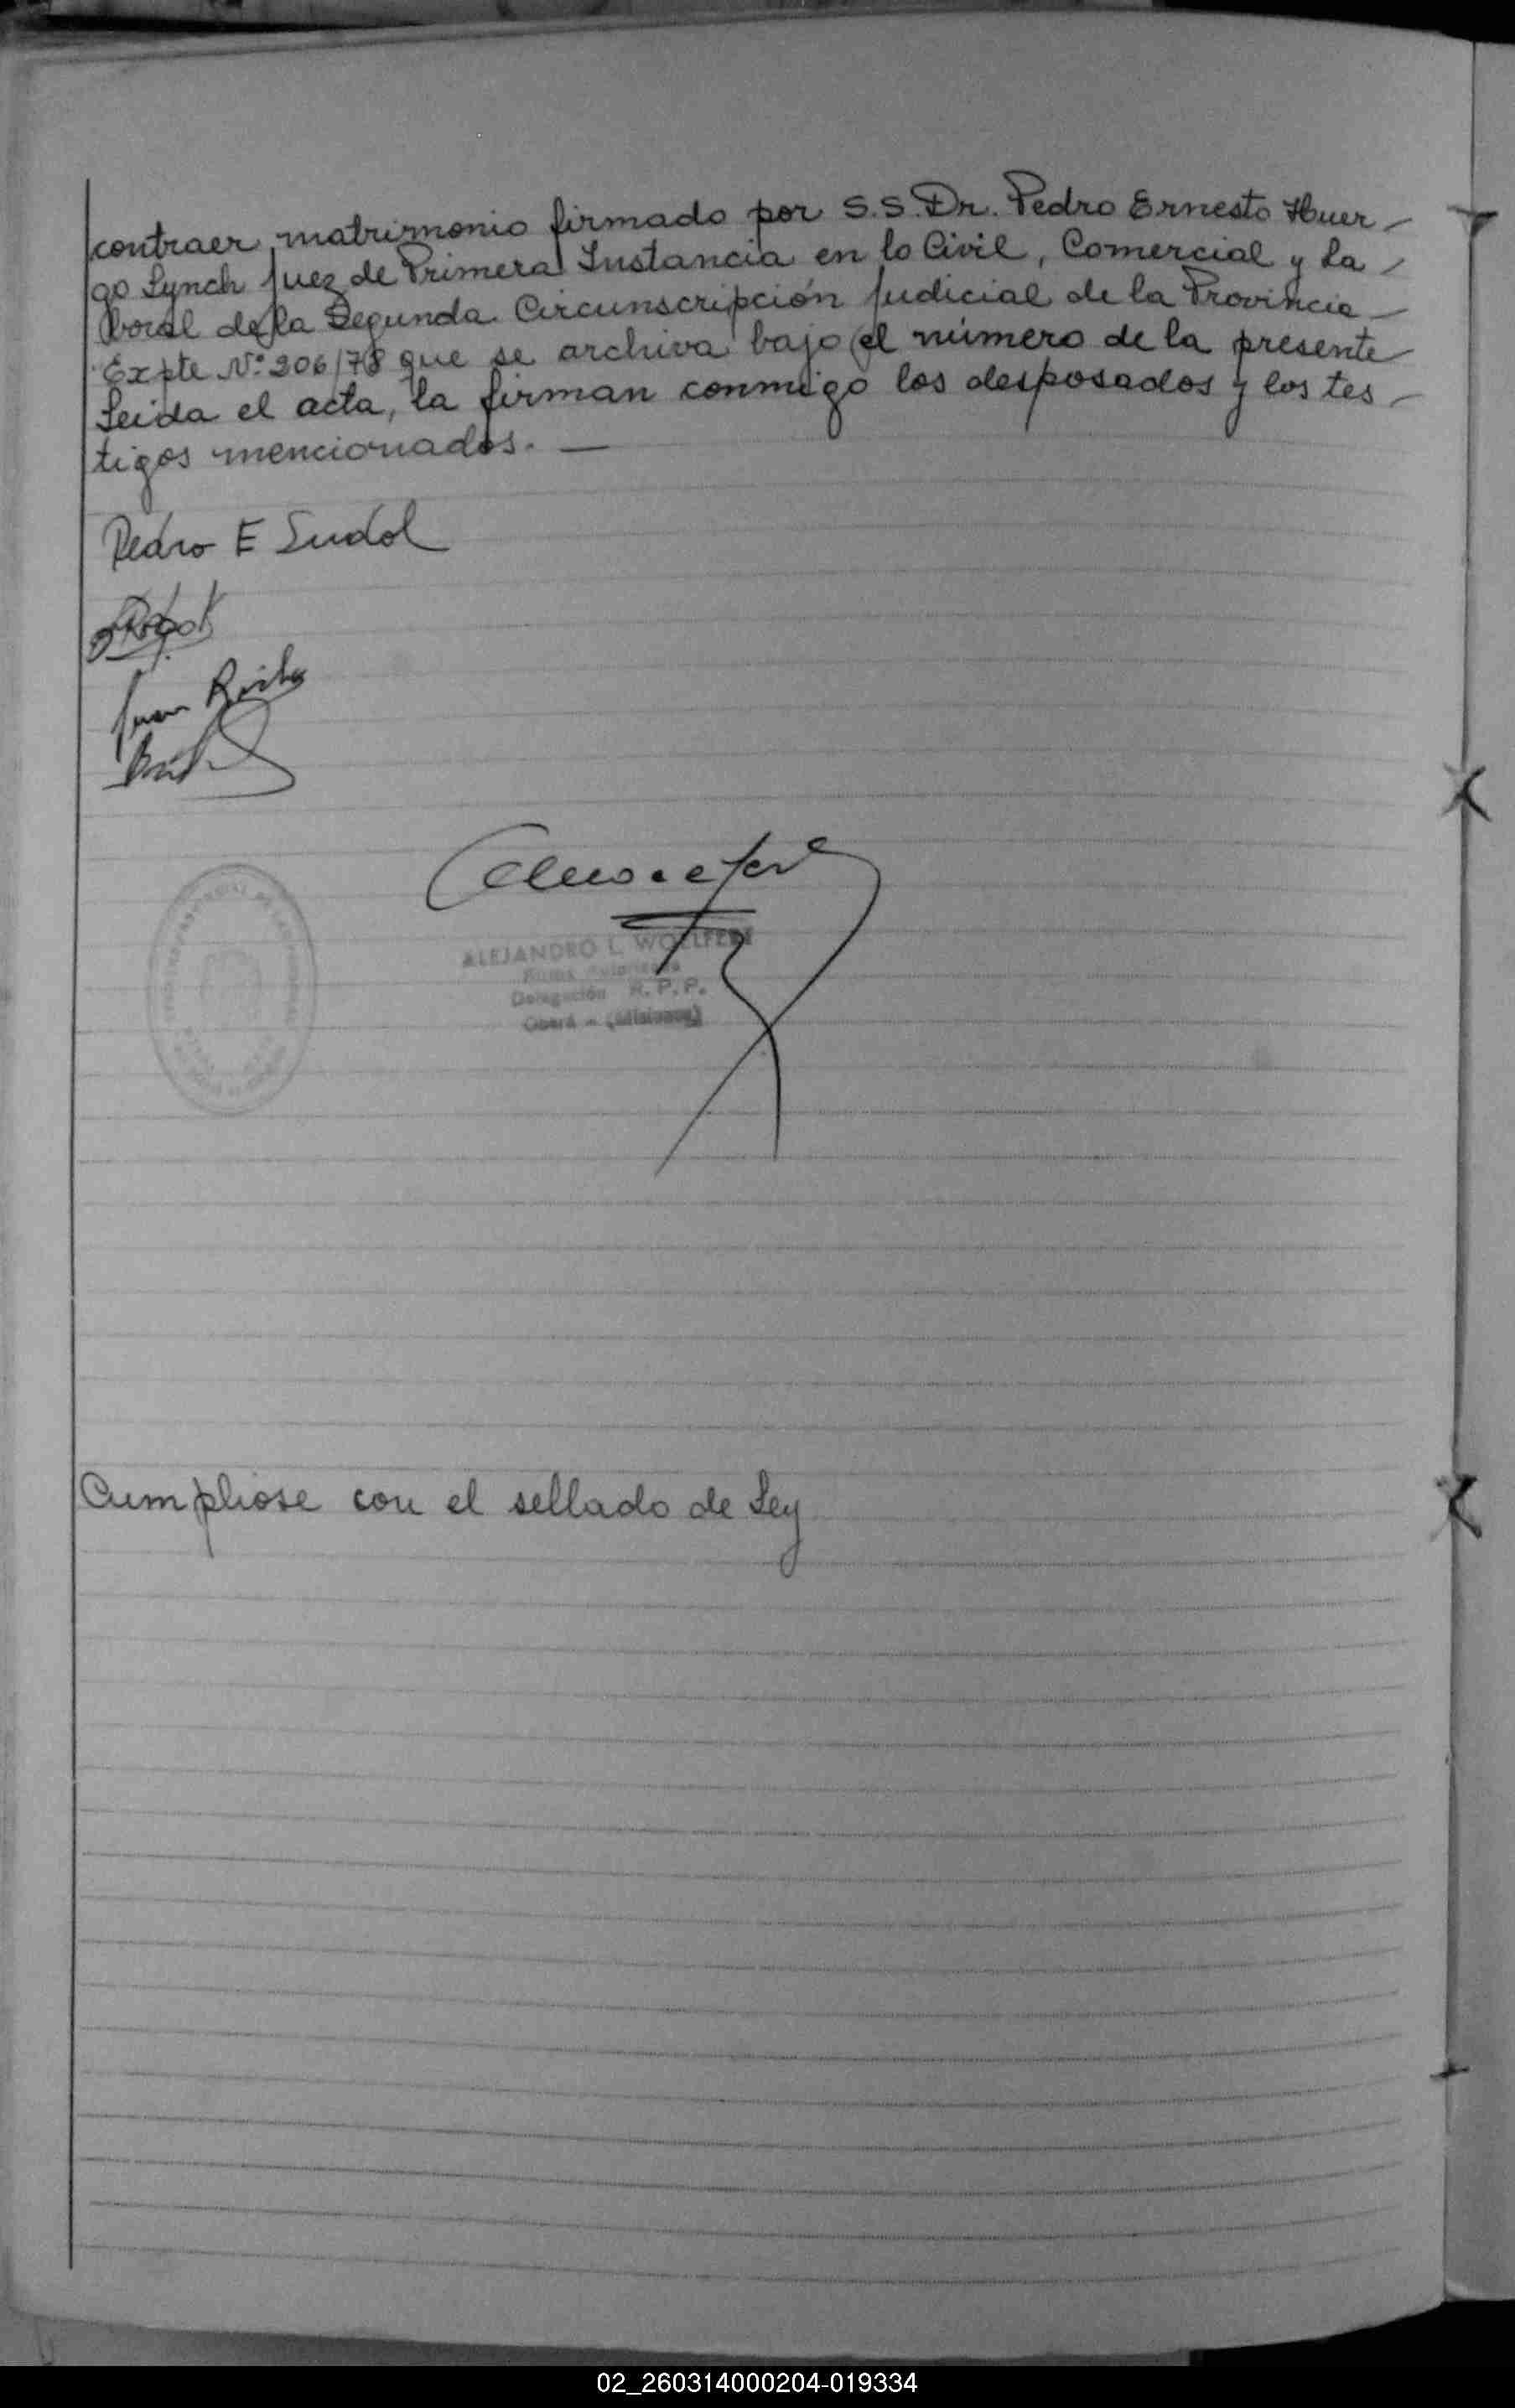 contraer matrimonio firmado por S.S. Dr. Pedro Ernesto Huer-
go Lynch Juez de Primera Instancia en lo Civil, Comercial y La-
boral de la Segunda Circunscripción Judicial de la Provincia-
Expte Nº 206/78 que se archiva bajo el número de la presente-
Leida el acta, la firman conmigo los desposados y los tes-
tigos mencionados. —
Pedro E Sudol
Juan
ALEJANDRO L. WOELFERT
Firma Autorizada
Delegación R. P. P.
Oberá - (Misiones)
Cumpliose con el sellado de Ley
02_260314000204-019334